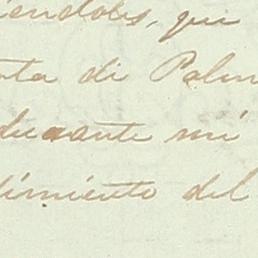 iendoles, que
ta de Palm
durante mi
dimiento del